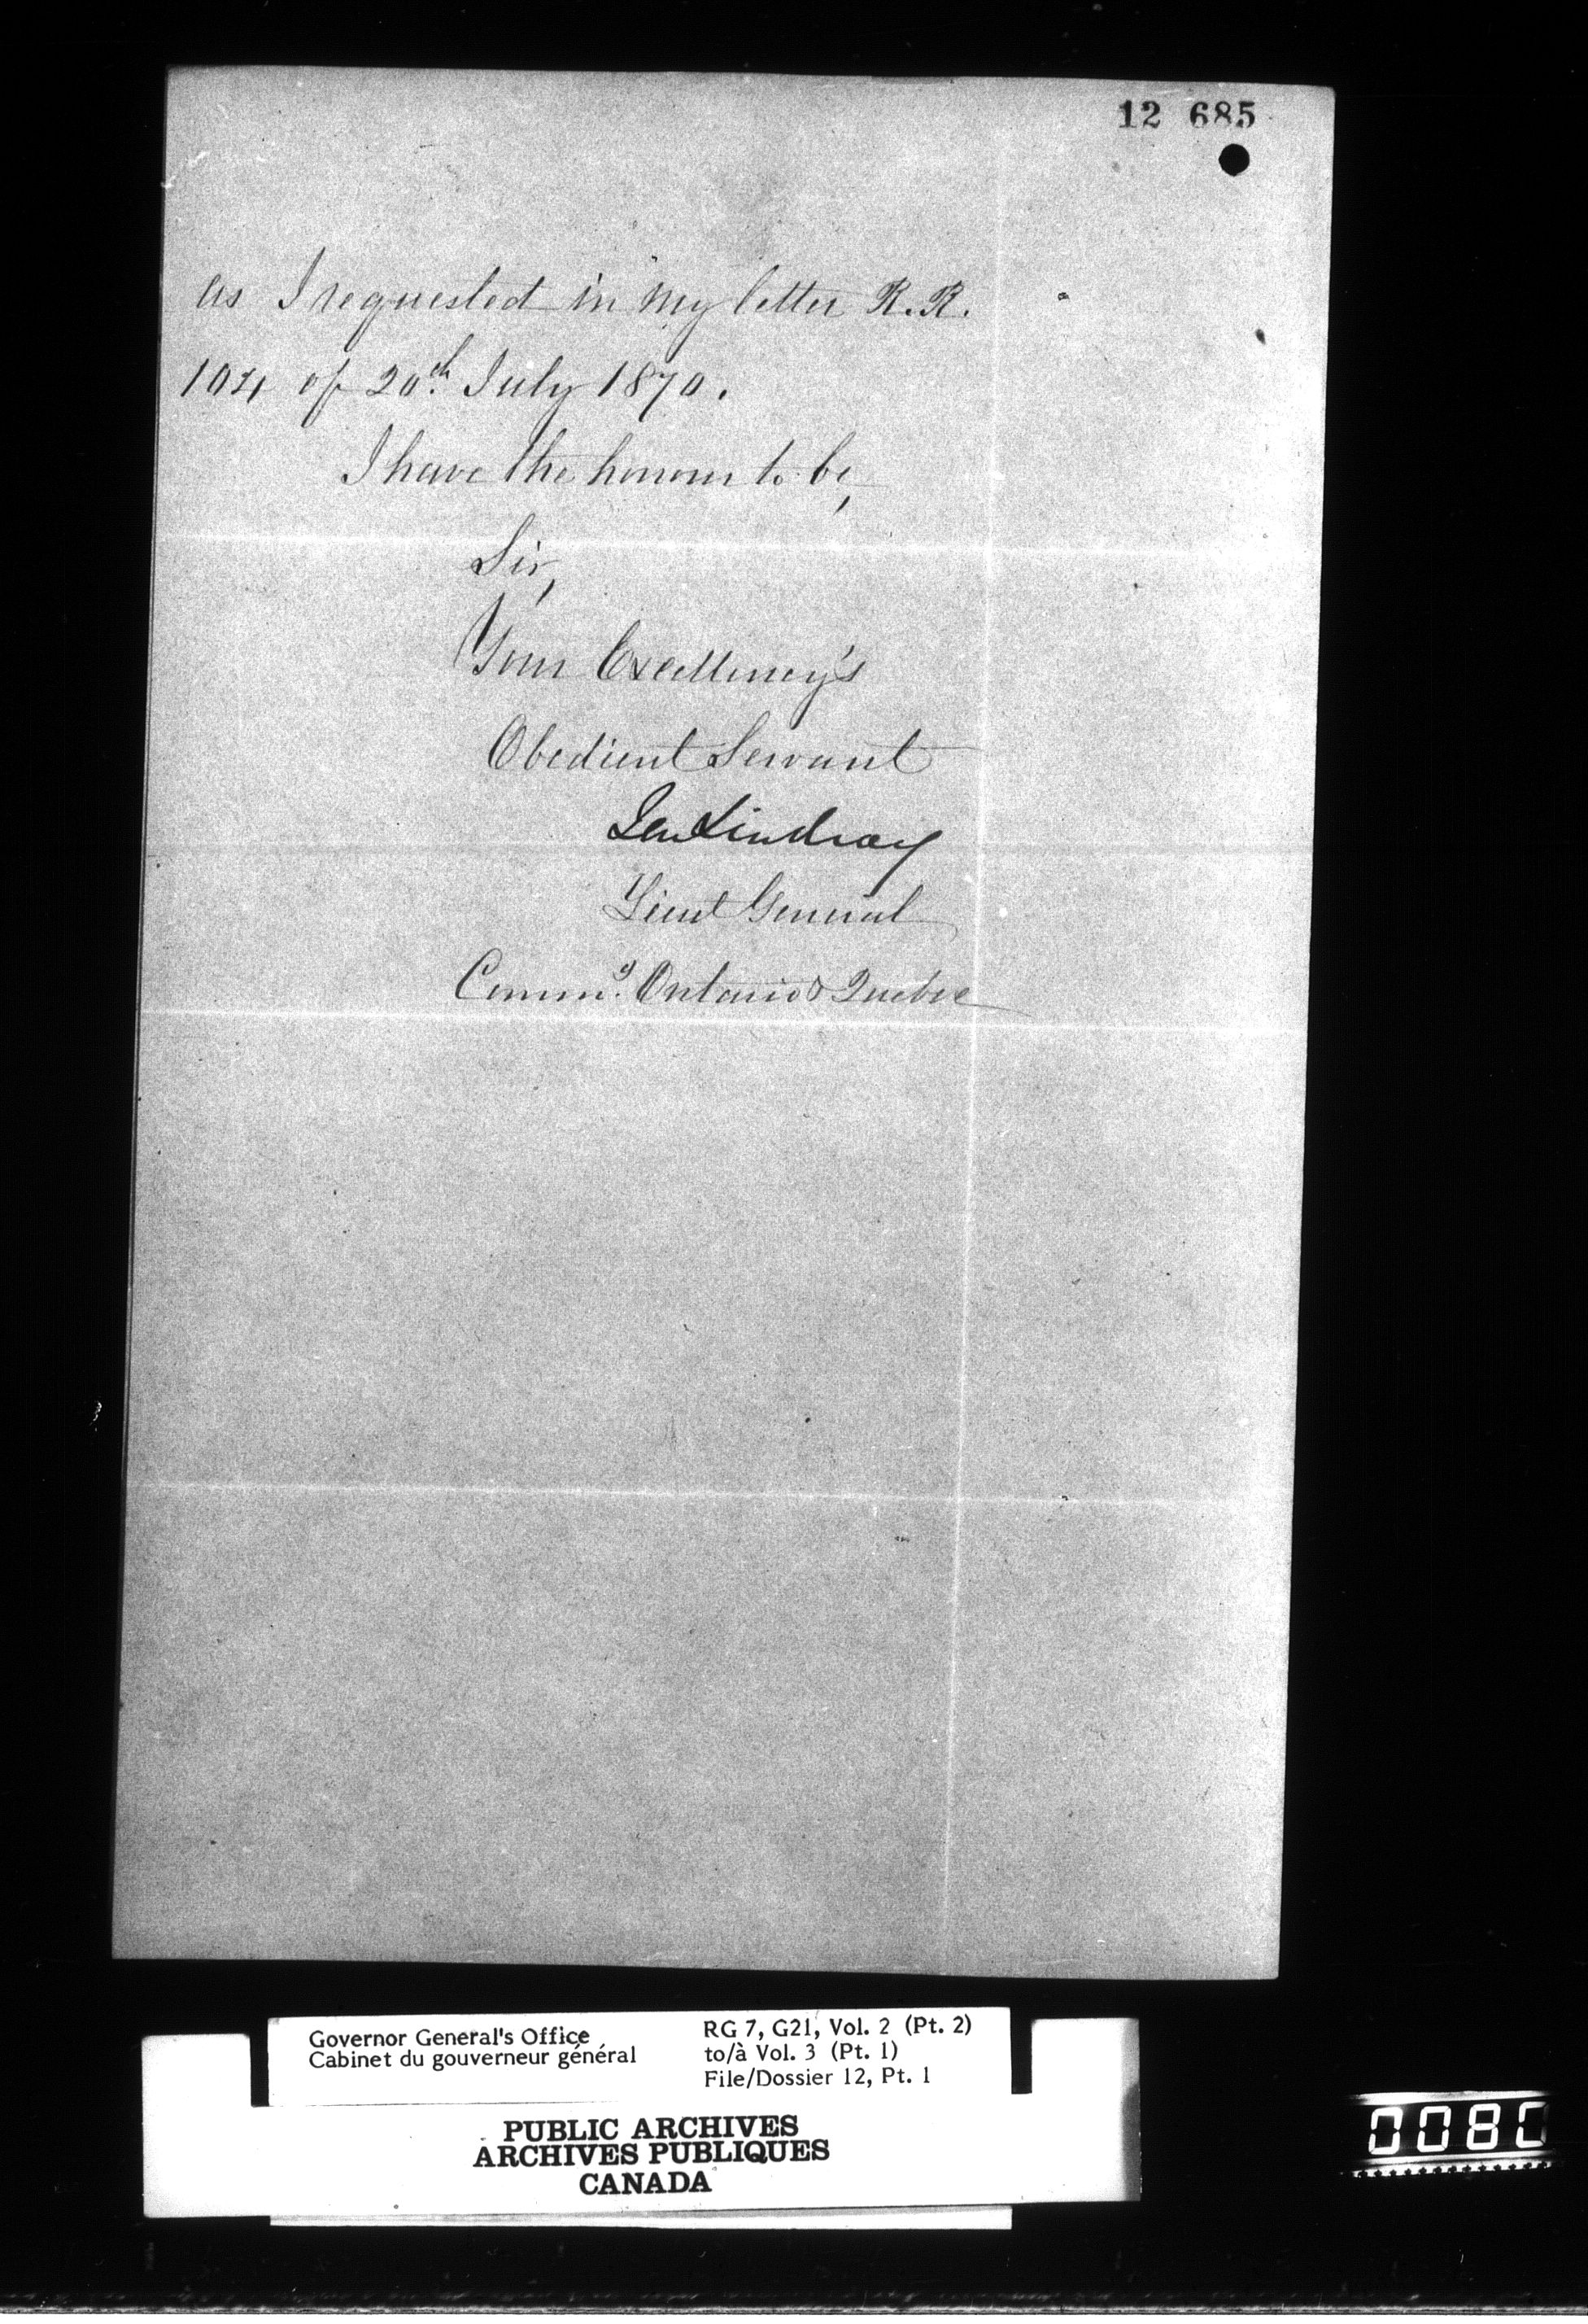 12 685
as I requested in my letter R. R.
104 of 20th July 1870.
I have the honour to be,
Sir,
Your Excellency's
Obedient Servant
Lindsay
Lieut General
Commg. Ontario & Quebec
Governor General's Office
Cabinet du gouverneur général
RG 7, G21, Vol. 2 (Pt. 2)
to/à Vol. 3 (Pt. 1)
File/Dossier 12, Pt. 1
PUBLIC ARCHIVES
ARCHIVES PUBLIQUES
CANADA
0080